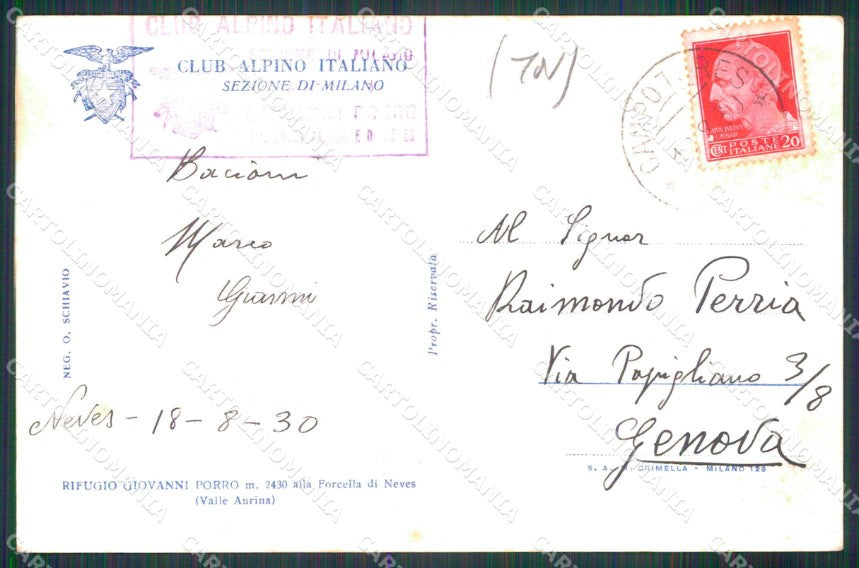 CLUB ALPINO ITALIANO
SEZIONE DI MILANO
CLUB ALPINO ITALIANO
SEZIONE DI MILANO
PORRO
(TN)
POSTE
ITALIANE
CENT 20
Bacioni
Marco
Gianni
Neves - 18 - 8 - 30
NEG. O. SCHIAVIO
Propr. Riservata
Al Signor
Raimondo Perria
Via Papigliano 3/8
Genova
S. A. GRIMELLA - MILANO 128
RIFUGIO GIOVANNI PORRO m. 2430 alla Forcella di Neves
(Valle Aurina)
CARTOLINOMANIA